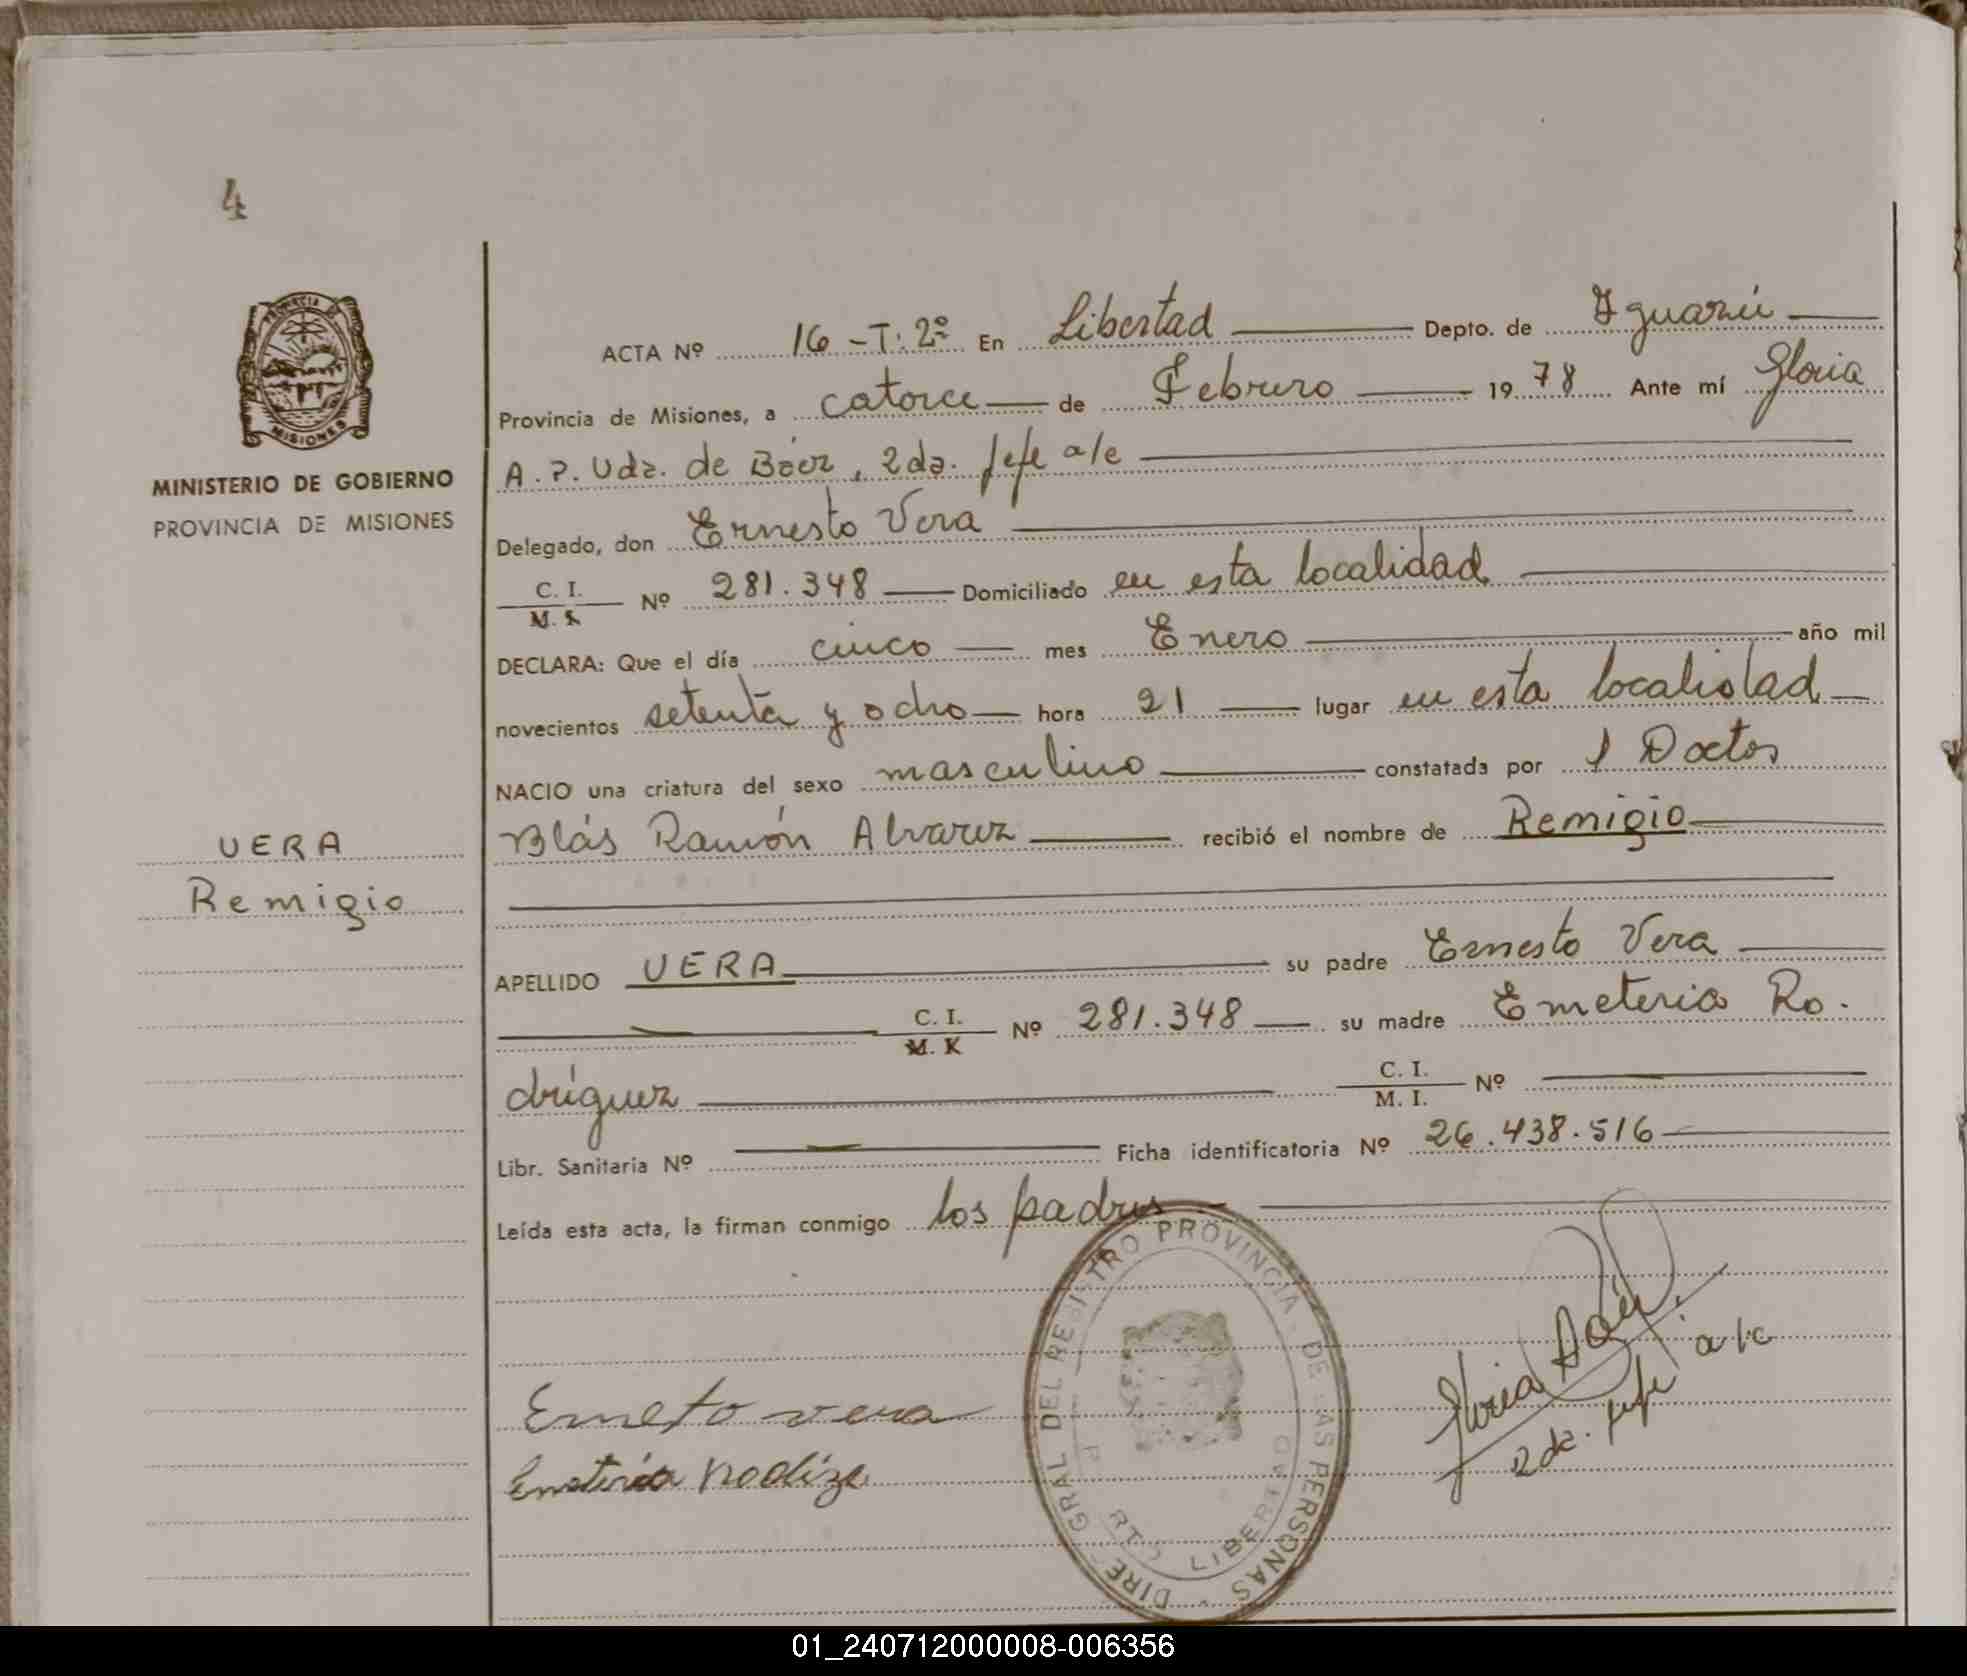 4
PROVINCIA DE
MISIONES
MINISTERIO DE GOBIERNO
PROVINCIA DE MISIONES
VERA
Remigio
ACTA Nº 16 - T: 2º En Libertad Depto. de Iguazú
Provincia de Misiones, a catorce de Febrero 1978 Ante mí Gloria
A. P. Vda. de Báez, 2da. Jefe a/c
Delegado, don Ernesto Vera
C. I.
M. I. Nº 281.348 Domiciliado en esta localidad
DECLARA: Que el día cinco mes Enero año mil
novecientos setenta y ocho hora 21 lugar en esta localidad
NACIO una criatura del sexo masculino constatada por Doctor
Blás Ramón Alvarez recibió el nombre de Remigio
APELLIDO VERA su padre Ernesto Vera
C. I.
M. I. Nº 281.348 su madre Emeteria Ro.
dríguez C. I.
M. I. Nº
Libr. Sanitaria Nº Ficha identificatoria Nº 26.438.516
Leída esta acta, la firman conmigo los padres
DIRE GRAL DEL REGISTRO PROVINCIA DE LAS PERSONAS
LIBERTAD
Erneto vera
Emeteria
Gloria Báez
2da. jefe a/c
01_240712000008-006356